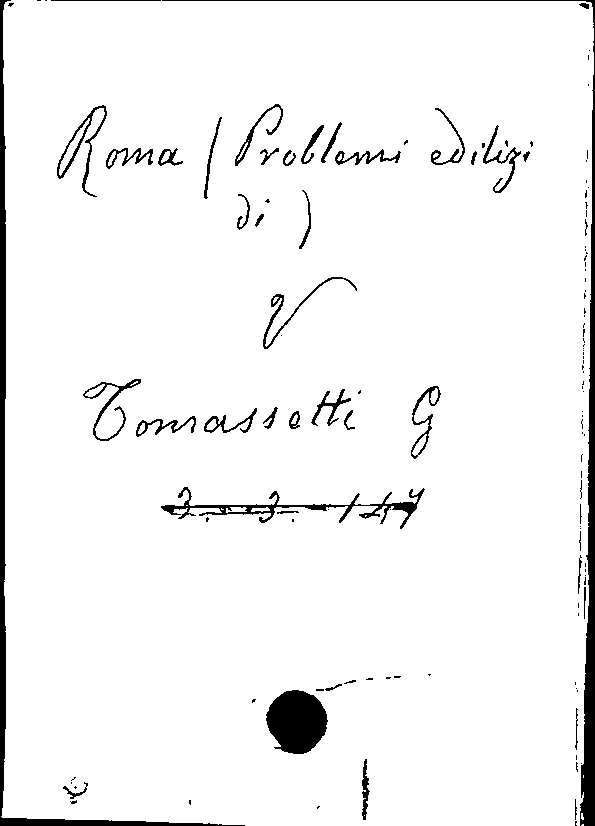 Roma (Problemi edilizi
di)
V
Tomassetti G
3. - 3. - 147